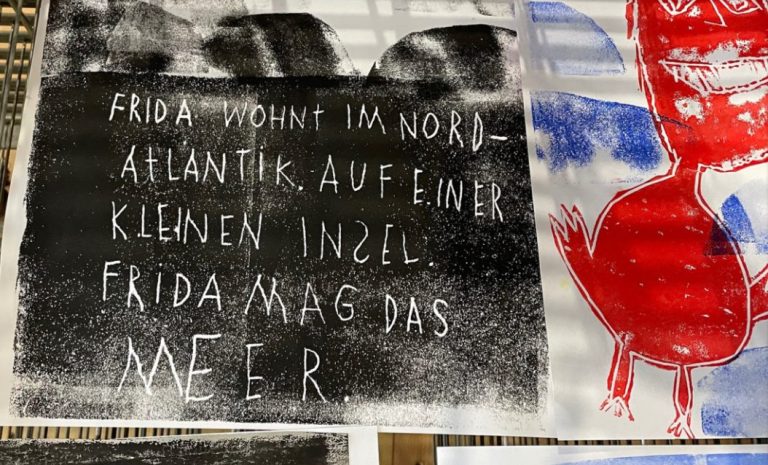 FRIDA WOHNT IM NORD-
ATLANTIK. AUF EINER
KLEINEN INSEL.
FRIDA MAG DAS
MEER.